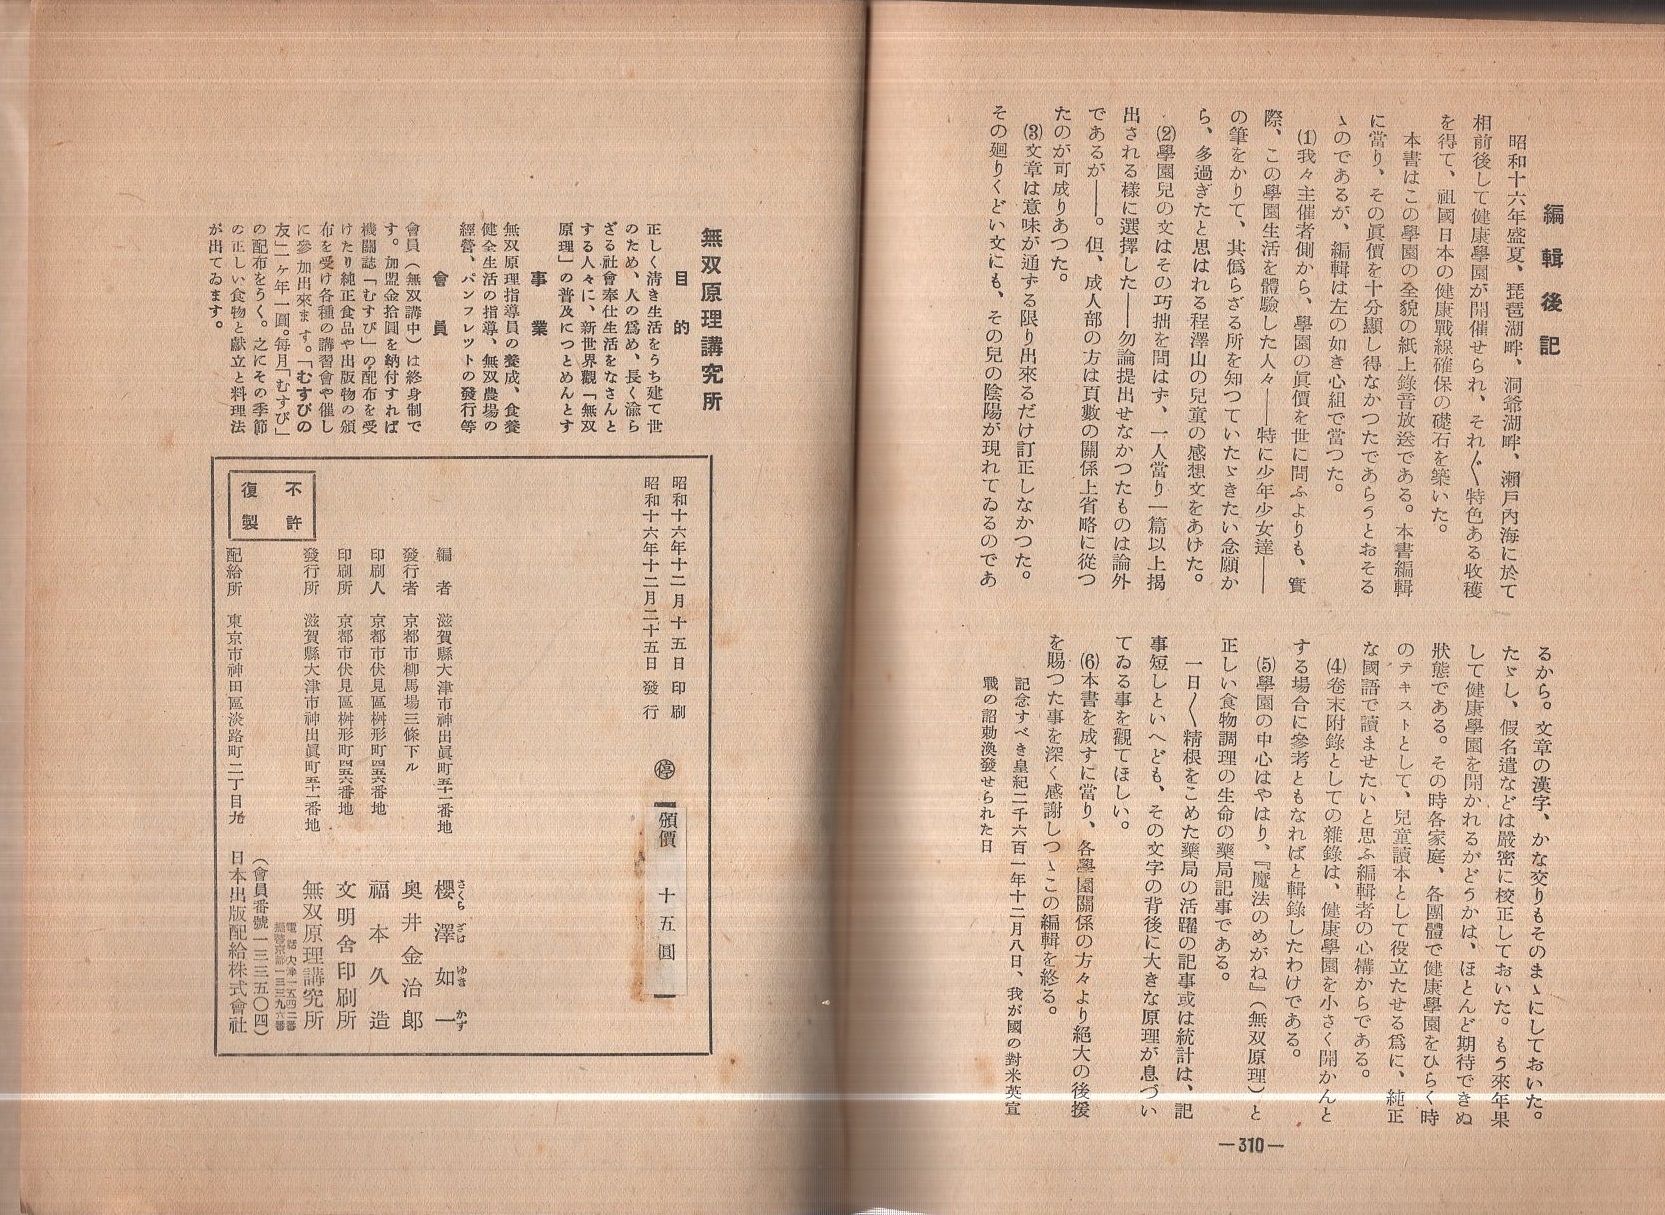 編輯後記
昭和十六年盛夏、琵琶湖畔、洞爺湖畔、瀬戸內海に於て
相前後して健康學園が開催せられ、それ〴〵特色ある收穫
を得て、祖國日本の健康戰線確保の礎石を築いた。
本書はこの學園の全貌の紙上錄音放送である。本書編輯
に當り、その眞價を十分顯し得なかつたであらうとおそる
ゝのであるが、編輯は左の如き心組で當つた。
⑴我々主催者側から、學園の眞價を世に問ふよりも、實
際、この學園生活を體驗した人々――特に少年少女達――
の筆をかりて、其僞らざる所を知つていたゞきたい念願か
ら、多過ぎたと思はれる程澤山の兒童の感想文をあげた。
⑵學園兒の文はその巧拙を問はず、一人當り一篇以上揭
出される樣に選擇した――勿論提出せなかつたものは論外
であるが――。但、成人部の方は頁數の關係上省略に從つ
たのが可成りあつた。
⑶文章は意味が通ずる限り出來るだけ訂正しなかつた。
その廻りくどい文にも、その兒の陰陽が現れてゐるのであ
るから。文章の漢字、かな交りもそのまゝにしておいた。
たゞし、假名遣などは嚴密に校正しておいた。もう來年果
して健康學園を開かれるがどうかは、ほとんど期待できぬ
狀態である。その時各家庭、各團體で健康學園をひらく時
のテキストとして、兒童讀本として役立たせる爲に、純正
な國語で讀ませたいと思ふ編輯者の心構からである。
⑷卷末附錄としての雜錄は、健康學園を小さく開かんと
する場合に參考ともなればと輯錄したわけである。
⑸學園の中心はやはり、『魔法のめがね』(無双原理)と
正しい食物調理の生命の藥局記事である。
一日〳〵精根をこめた藥局の活躍の記事或は統計は、記
事短しといへども、その文字の背後に大きな原理が息づい
てゐる事を觀てほしい。
⑹本書を成すに當り、各學園關係の方々より絕大の後援
を賜つた事を深く感謝しつゝこの編輯を終る。
記念すべき皇紀二千六百一年十二月八日、我が國の對米英宣
戰の詔勅渙發せられた日
―310―
無双原理講究所
目的
正しく淸き生活をうち建て世
のため、人の爲め、長く渝ら
ざる社會奉仕生活をなさんと
する人々に、新世界觀「無双
原理」の普及につとめんとす
事業
無双原理指導員の養成、食養
健全生活の指導、無双農場の
經營、パンフレツトの發行等
會員
會員(無双講中)は終身制で
す。加盟金拾圓を納付すれば
機關誌「むすび」の配布を受
けたり純正食品や出版物の頒
布を受け各種の講習會や催し
に參加出來ます。「むすびの
友」一ヶ年一圓。每月「むすび」
の配布をうく。之にその季節
の正しい食物と獻立と料理法
が出てゐます。
昭和十六年十二月十五日印刷
昭和十六年十二月二十五日發行
㊡
頒價 十五圓
編者 滋賀縣大津市神出眞町五十一番地 櫻澤如一
さくら ざは ゆき かず
發行者 京都市柳馬場三條下ル 奧井金治郎
印刷人 京都市伏見區桝形町四五六番地 福本久造
印刷所 京都市伏見區桝形町四五六番地 文明舍印刷所
發行所 滋賀縣大津市神出眞町五十一番地 無双原理講究所
電話・大津一五四二番
振替京都一三三九六番
(會員番號一三三五〇四)
配給所 東京市神田區淡路町二丁目九 日本出版配給株式會社
不許
復製